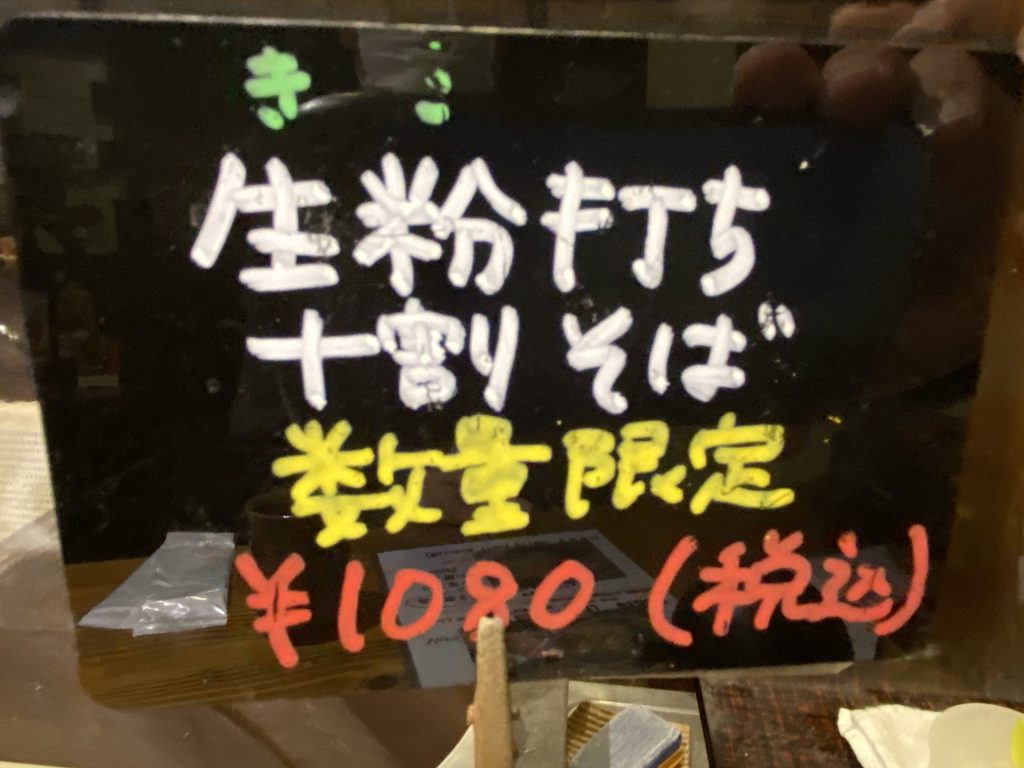 き こ
生粉打ち
十割そば
数量限定
¥1080(税込)